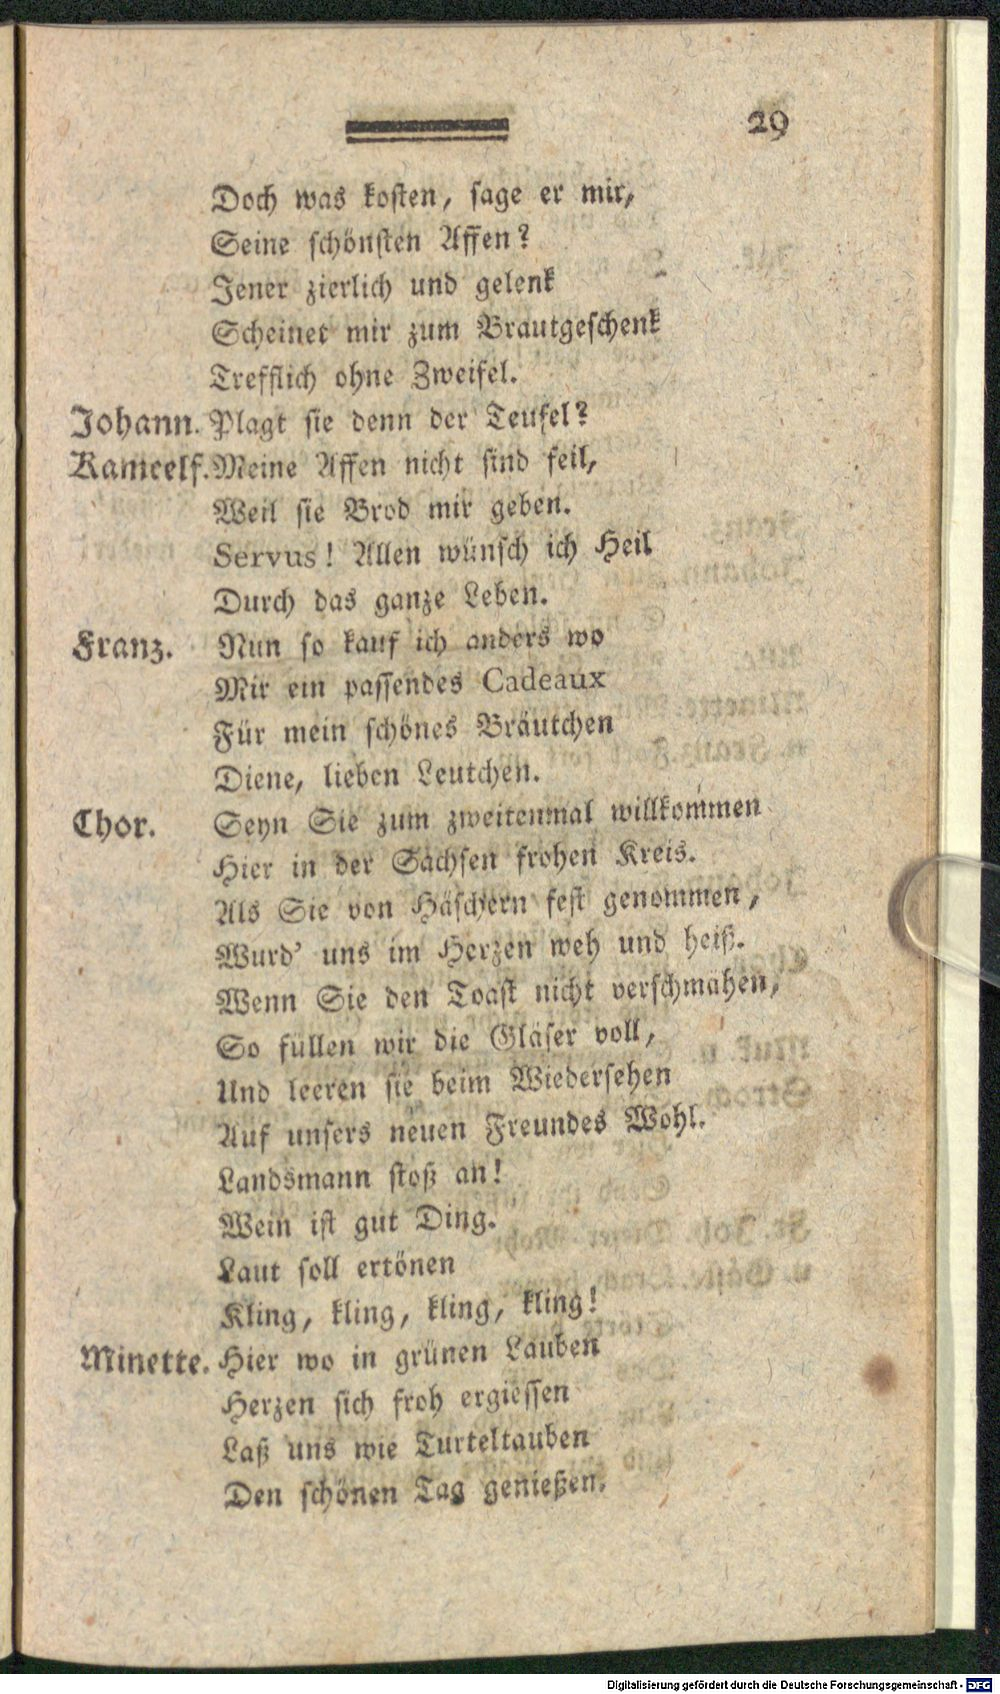 29
Doch was kosten, sage er mir,
Seine schönsten Affen?
Jener zierlich und gelenk
Scheinet mir zum Brautgeschenk
Trefflich ohne Zweifel.
Johann. Plagt sie denn der Teufel?
Kameelf. Meine Affen nicht sind feil,
Weil sie Brod mir geben.
Servus! Allen wünsch ich Heil
Durch das ganze Leben.
Franz. Nun so kauf ich anders wo
Mir ein passendes Cadeaux
Für mein schönes Bräutchen
Diene, lieben Leutchen.
Chor. Seyn Sie zum zweitenmal willkommen
Hier in der Sachsen frohen Kreis.
Als Sie von Häschern fest genommen,
Wurd' uns im Herzen weh und heiß.
Wenn Sie den Toast nicht verschmähen,
So füllen wir die Gläser voll,
Und leeren sie beim Wiedersehen
Auf unsers neuen Freundes Wohl.
Landsmann stoß an!
Wein ist gut Ding.
Laut soll ertönen
Kling, kling, kling, kling!
Minette. Hier wo in grünen Lauben
Herzen sich froh ergiessen
Laß uns wie Turteltauben
Den schönen Tag genießen.
Digitalisierung gefördert durch die Deutsche Forschungsgemeinschaft - DFG